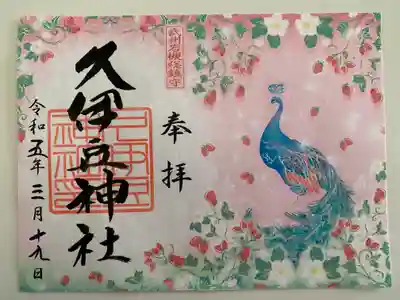 武州岩槻総鎮守
奉拝
久伊豆神社
令和五年三月十九日